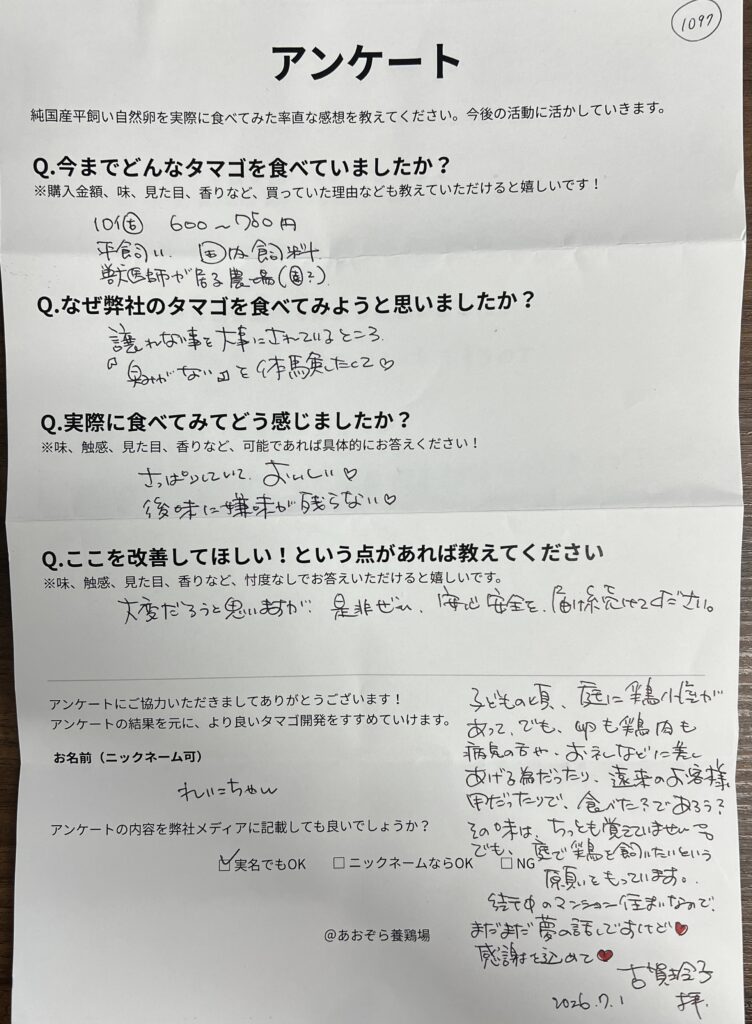 1097
アンケート
純国産平飼い自然卵を実際に食べてみた率直な感想を教えてください。今後の活動に活かしていきます。
Q.今までどんなタマゴを食べていましたか？
※購入金額、味、見た目、香りなど、買っていた理由なども教えていただけると嬉しいです！
10個 600〜750円
平飼い. 国内飼料.
獣医師が居る農場(園?)
Q.なぜ弊社のタマゴを食べてみようと思いましたか？
譲れない事を大事にされているところ.
『臭みがない』を体験したくて♡
Q.実際に食べてみてどう感じましたか？
※味、触感、見た目、香りなど、可能であれば具体的にお答えください！
さっぱりしていて、おいしい♡
後味に嫌味が残らない♡
Q.ここを改善してほしい！という点があれば教えてください
※味、触感、見た目、香りなど、忖度なしでお答えいただけると嬉しいです。
大変だろうと思いますが、是非ぜひ、安心安全を、届け続けてください。
アンケートにご協力いただきましてありがとうございます！
アンケートの結果を元に、より良いタマゴ開発をすすめていけます。
お名前（ニックネーム可）
れいこちゃん
アンケートの内容を弊社メディアに記載しても良いでしょうか？
☑実名でもOK □ニックネームならOK □NG
@あおぞら養鶏場
子どもの頃、庭に鶏小屋が
あって、でも、卵も鶏肉も
病見舎や、お礼などに差し
あげる為だったり、遠来のお客様
用だったりで、食べたであろう?
その味は、ちっとも覚えていません
でも、庭で鶏を飼いたいという
願いをもっています。
街中のマンション住まいなので、
まだまだ夢の話しですけど♥
感謝を込めて♥
古賀玲子
2026.7.1 拝